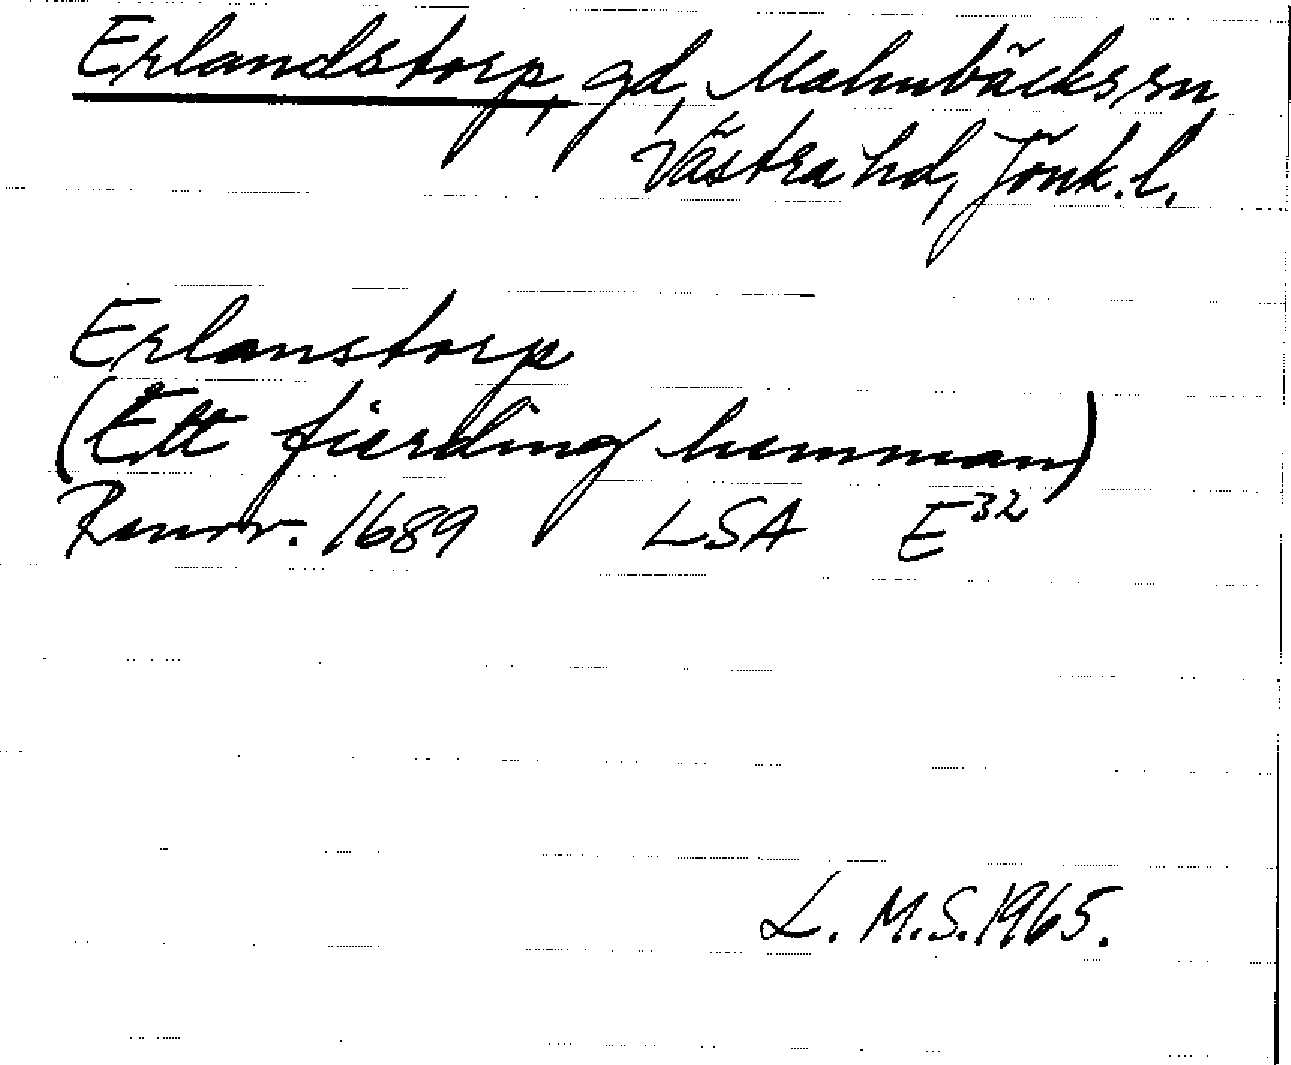 Erlandstorp, gd, Malmbäcks sn
Västra hd, Jönk. l.
Erlanstorp
(Ett fierding hemman)
Rannr. 1689 LSA E32
L. M.S. 1965.